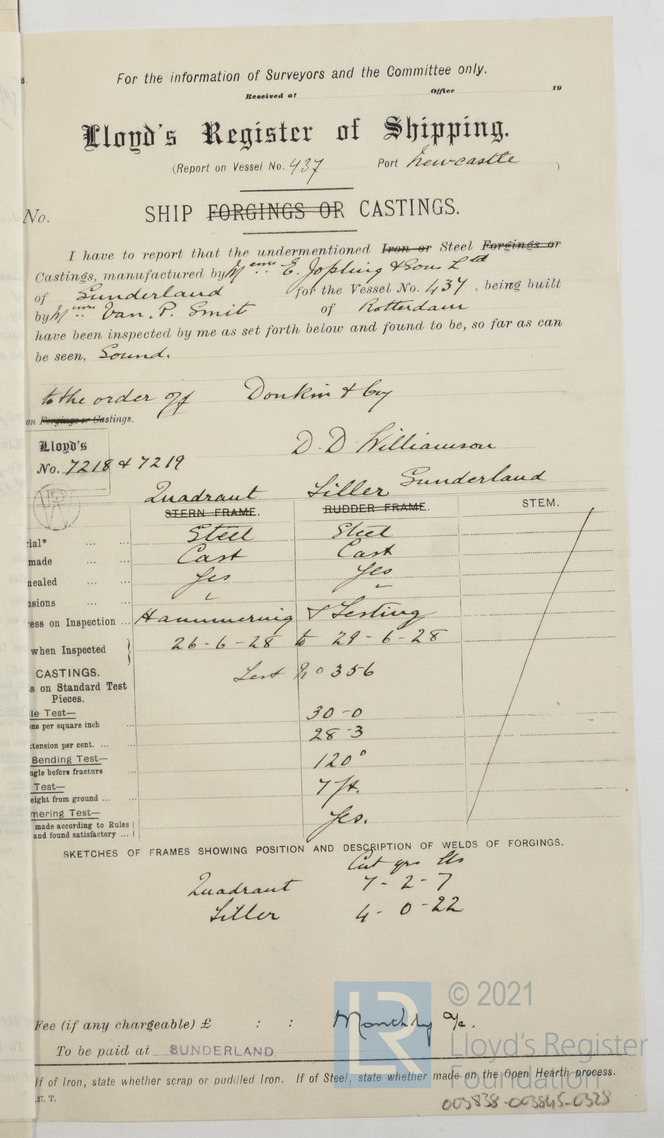 For the information of Surveyors and the Committee only.
Received at Office 19
Lloyd's Register of Shipping.
(Report on Vessel No. 437 Port Newcastle )
No.
SHIP FORGINGS OR CASTINGS.
I have to report that the undermentioned Iron or Steel Forgings or
Castings, manufactured by E. Jopling & Sons Ltd
of Sunderland for the Vessel No. 437, being built
by Van. P. Smit of Rotterdam
have been inspected by me as set forth below and found to be, so far as can
be seen, Sound.
to the order of Donkin & Coy
on Forgings or Castings.
Lloyd's
No. 7218 & 7219
D. D. Williamson
Sunderland
Quadrant Tiller
STERN FRAME. RUDDER FRAME. STEM.
ial* Steel Steel
made Cast Cast
nealed Yes Yes
nsions
ess on Inspection Hammering & Testing
when Inspected 26-6-28 to 29-6-28
CASTINGS. Test No 356
s on Standard Test
Pieces.
le Test— 30-0
ns per square inch
tension per cent. 28-3
Bending Test— 120°
ngle before fracture
Test— 7 ft.
eight from ground
mering Test— Yes.
made according to Rules
and found satisfactory
SKETCHES OF FRAMES SHOWING POSITION AND DESCRIPTION OF WELDS OF FORGINGS.
Cwt qrs lbs
Quadrant 7-2-7
Tiller 4-0-22
Fee (if any chargeable) £ : : Monthly a/c.
To be paid at SUNDERLAND.
If of Iron, state whether scrap or puddled Iron. If of Steel, state whether made on the Open Hearth process.
27. T.
LR
© 2021
Lloyd's Register
Foundation
003838-003845-0328